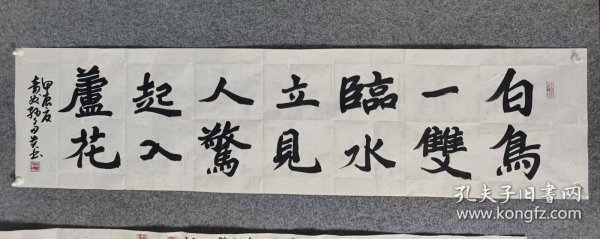 白鳥
一雙
臨水
立見
人驚
起入
蘆花
孔夫子旧书网
www.kongfz.com